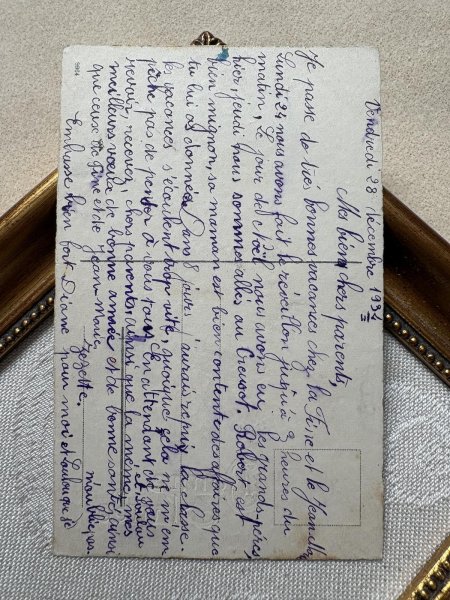 Vendredi 28 Décembre 1934
Mes bien chers parents,
Je passe de très bonnes vacances chez la Fine et le Jean-Marc
Lundi 24 nous avons fait le réveillon jusqu'à 3 heures du
matin, Le jour de Noël nous avons eu les grands-pères,
hier, jeudi nous sommes allés au Creusot. Robert est
bien mignon sa maman est bien contente des affaires que
tu lui as données. Dans 8 jours j'aurais repris la classe.
les vacances s'écoulent trop vite, quoique cela ne m'em
pêche pas de penser à vous tous. En attendant de vous
revoir, recevez, chers parents, ainsi que la mémé, mes
meilleurs vœux de bonne année et de bonne santé, ainsi
que ceux de Fine et de Jean-Marc,
Zézette.
Embrasse bien fort Diane pour moi et
n'oublie pas.
5864